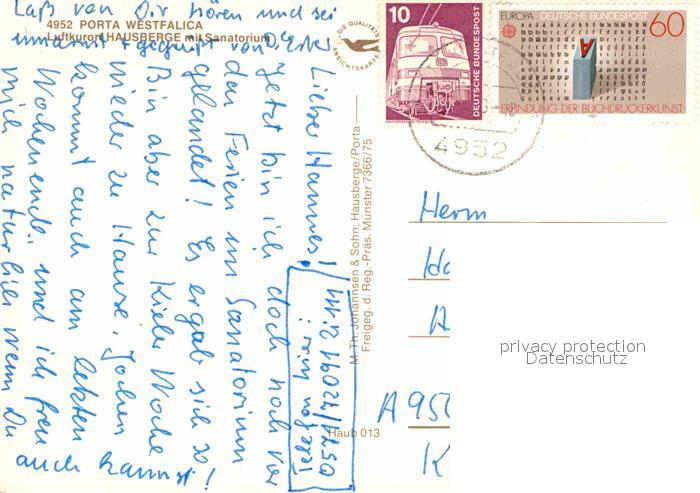 4952 PORTA WESTFALICA
Luftkurort HAUSBERGE mit Sanatorium
DIE QUALITÄTS
ANSICHTSKARTE
Liebe Hannes!
Jetzt bin ich doch noch vor
den Ferien im Sanatorium
gelandet! Es ergab sich so!
Bin aber zur Kieler Woche
wieder zu Hause. Jochen
kommt auch am letzten
Wochenende und ich freu
mich natürlich wenn Du
auch kannst!
Laß von Dir hören und sei
umarmt + gegrüßt von D.
Telefon hier:
M. Th. Johannsen & Sohn, Hausberge/Porta
Freigeg. d. Reg.-Präs. Münster 7366/75
Haub 013
10
DEUTSCHE BUNDESPOST
EUROPA DEUTSCHE BUNDESPOST
60
ERFINDUNG DER BUCHDRUCKERKUNST
1983
4952
Herrn
A 950
K
privacy protection
Datenschutz